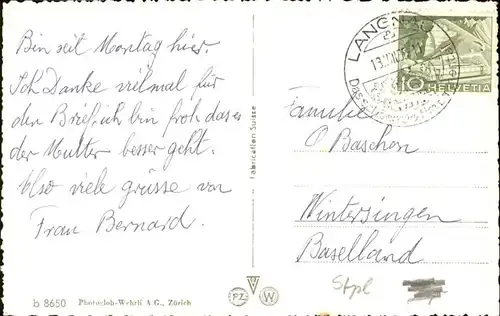 Bin seit Montag hier.
Ich Danke vielmal für
den Brief, ich bin froh das es
der Mutter besser geht.
Also viele grüsse von
Frau Bernard.
b 8650 Photoglob-Wehrli A G., Zürich
Fabrication Suisse
PZ W
LANGNAU
13.
10 HELVETIA
Familie
O Baschon
Wintersingen
Baselland
Stpl